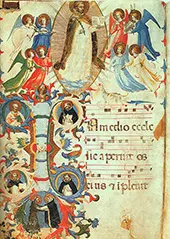 IN medio eccle
sie aperuit os
eius et ipleuit